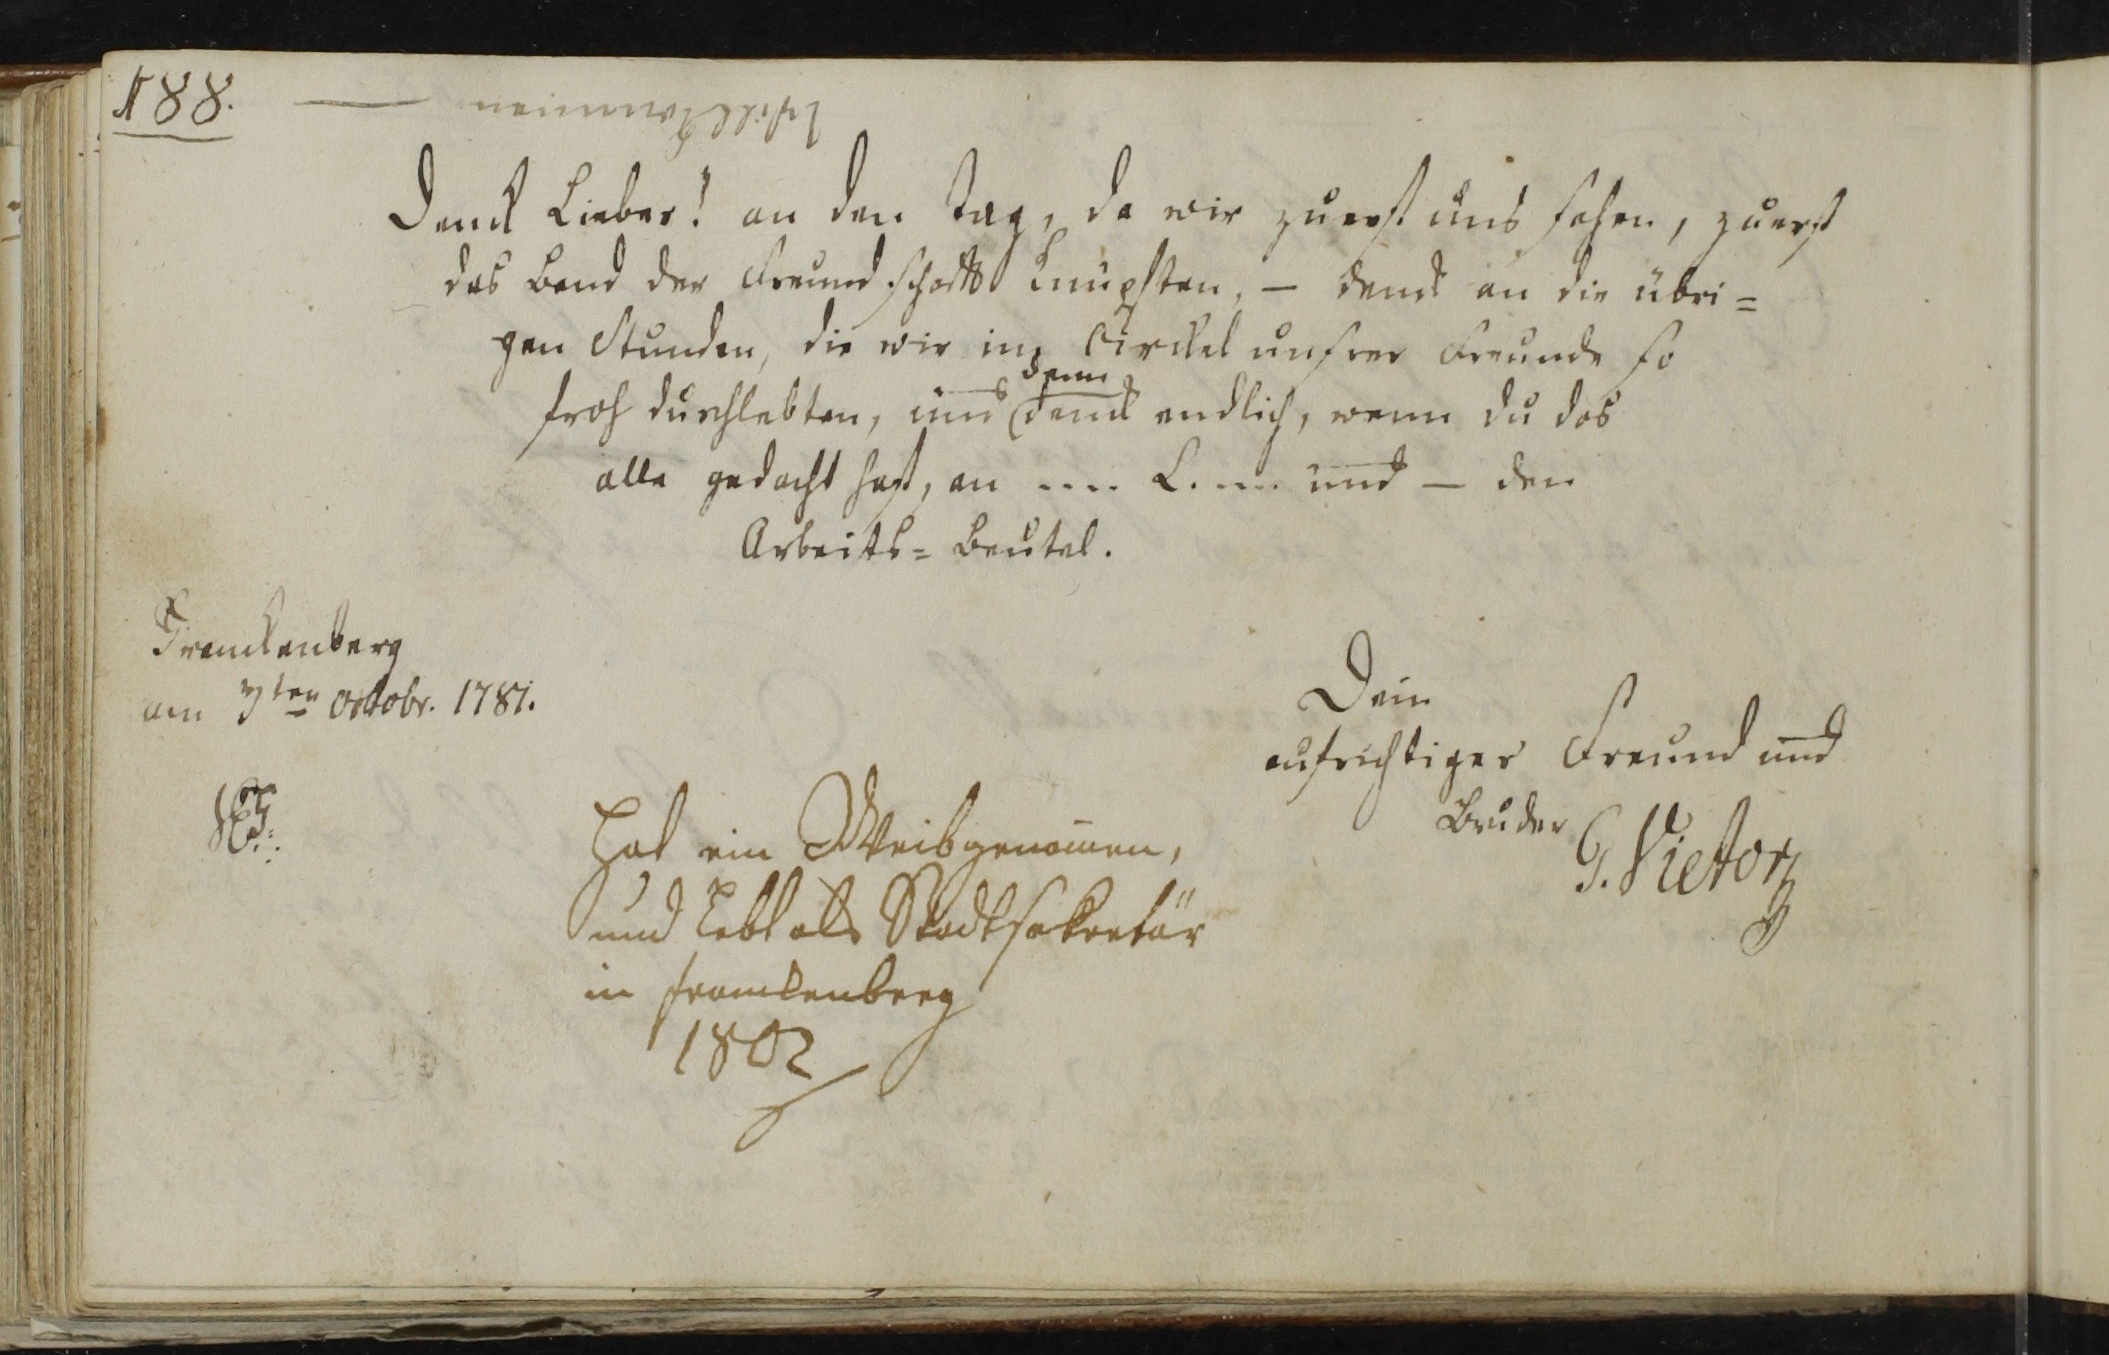 188.
Willkommen —
Denck Lieber! an den Tag, da wir zuerst uns sahen, zuerst
das Band der Freundschafft knüpften, — denck an die übri=
gen Stunden, die wir im Circkel unsrer Freunde so
denn
froh durchlebten, und denck endlich, wenn du das
alle gedacht hast, an .... L.... und — den
Arbeits=Beutel.
Franckenberg
am 7ten Octobr. 1781.
Dein
aufrichtiger Freund und
Bruder
G. Vietor
Hat ein Weib genommen,
und lebt als Stadtsekretär
in Franckenberg
1802